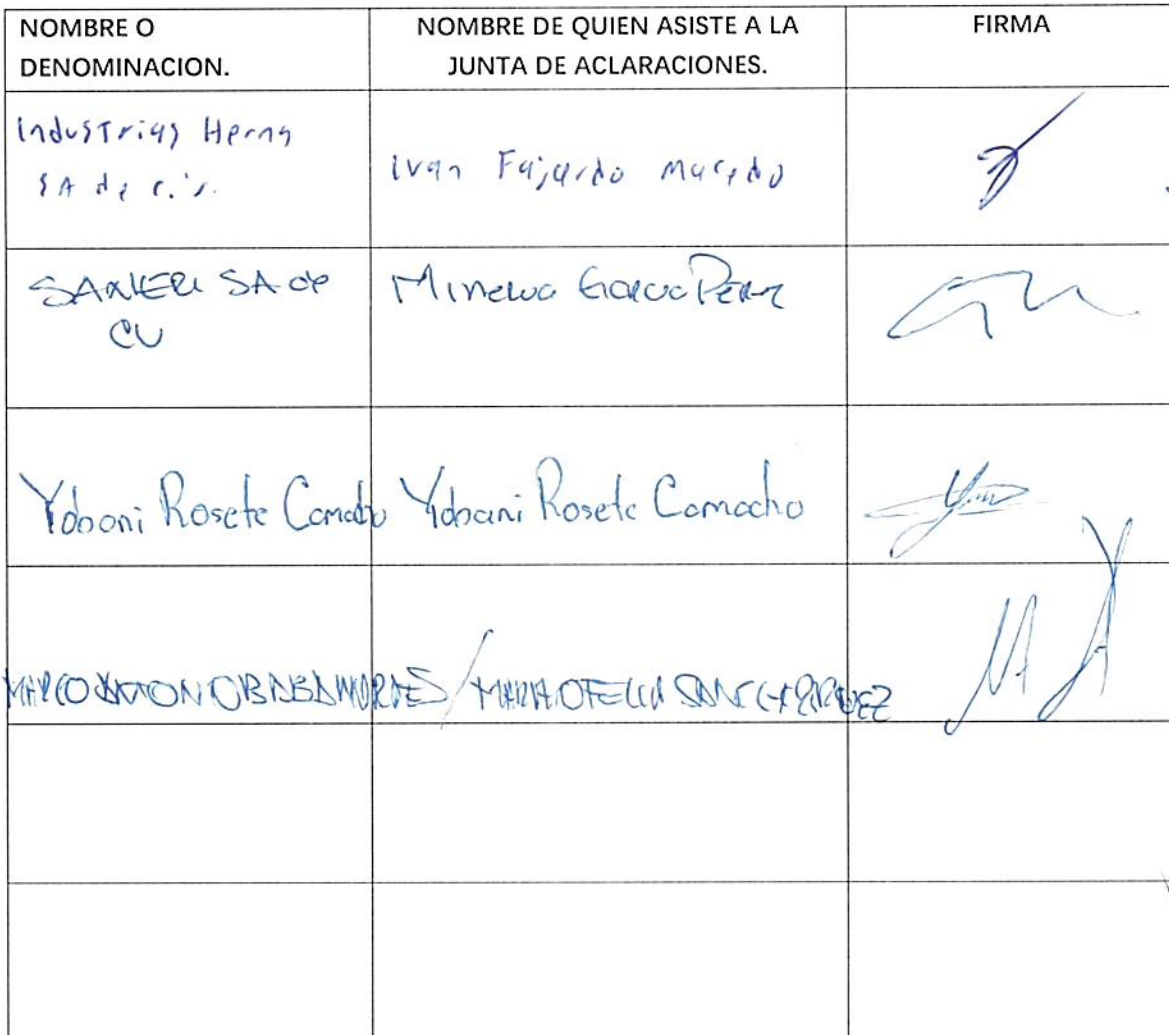 NOMBRE O
DENOMINACION.
NOMBRE DE QUIEN ASISTE A LA
JUNTA DE ACLARACIONES.
FIRMA
Industrias Herna
SA de c.v.
Ivan Fajardo Macedo
SA de
CV
Minerva Garcia Perez
Yobani Rosete Camacho
Yobani Rosete Camacho
MARCO ANTONIO
MARIA OFELIA